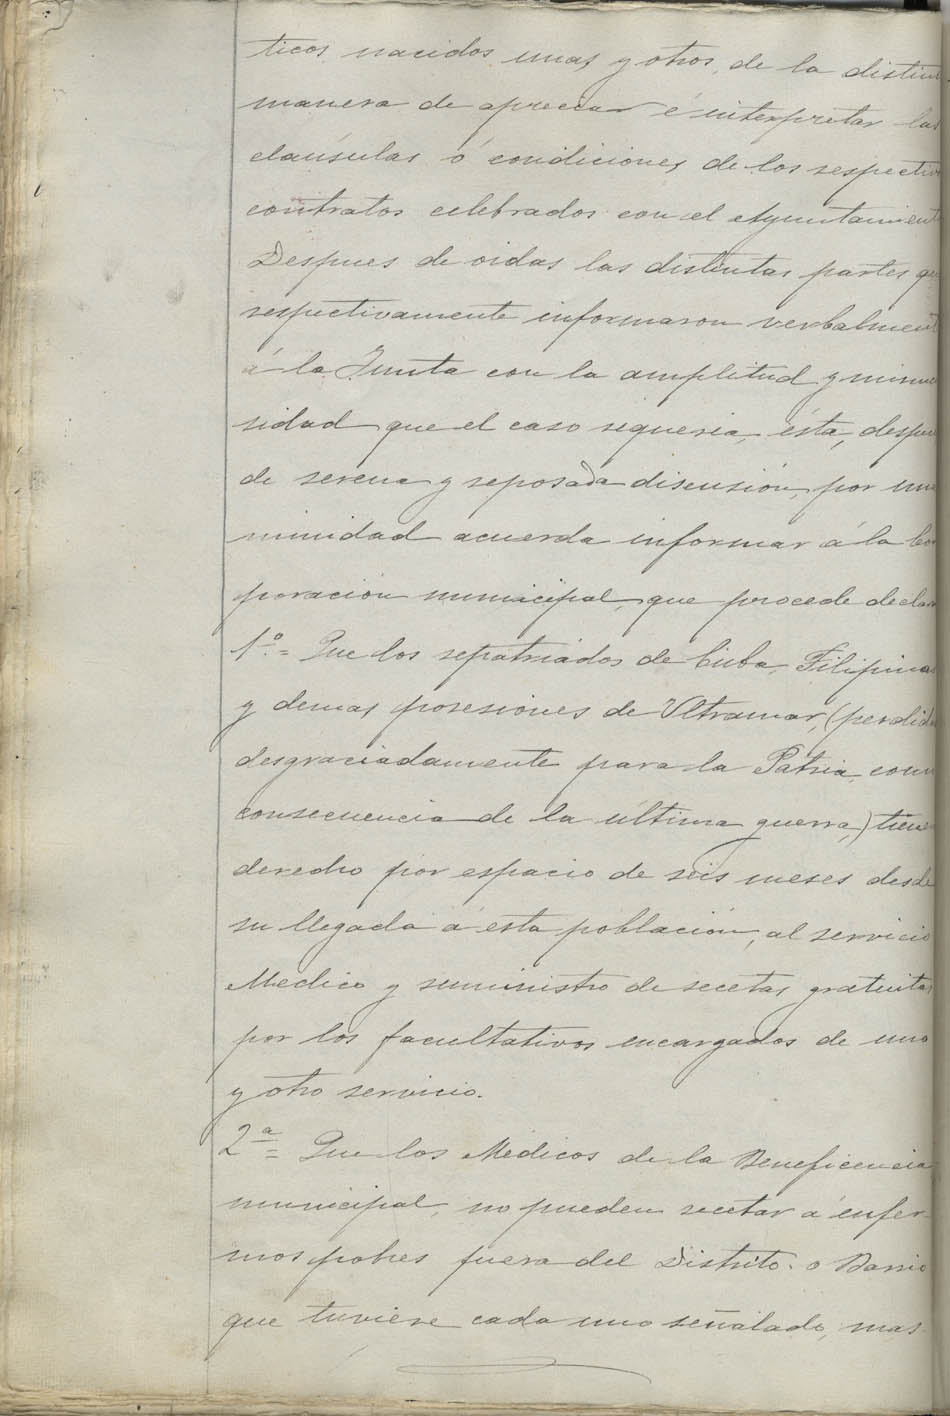 ticos, nacidos unas y otros, de la distin
manera de apreciar é interpretar las
claúsulas ó condiciones de los respectiv
contratos celebrados con el Ayuntamient
Despues de oidas las distintas partes qu
respectivamente informaron verbalment
á la Junta con la amplitud y minu
sidad que el caso requeria, ésta, despu
de serena y reposada discusión, por una
nimidad acuerda informar á la Cor
poración municipal, que procede declar
1º.= Que los repatriados de Cuba, Filipinas
y demas posesiones de Ultramar, (perdid
desgraciadamente para la Patria, com
consecuencia de la última guerra,) tien
derecho por espacio de seis meses desde
su llegada á esta población, al servicio
Medico y suministro de recetas gratuitas
por los facultativos encargados de uno
y otro servicio.
2ª= Que los Médicos de la Beneficencia
municipal, no pueden recetar á enfer-
mos pobres fuera del Distrito o Barrio
que tuviere cada uno señalado, mas